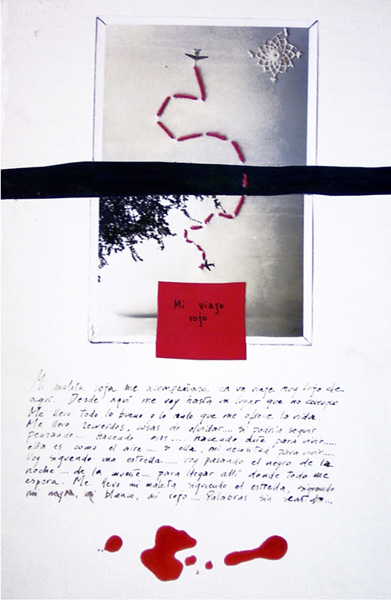 Mi viaje
rojo
Mi maleta roja me acompañara en un viaje muy lejos de
aquí. Desde aquí me voy hasta un lugar que no conozco
Me llevo todo lo bueno y lo malo que me ofrece la vida.
Me llevo recuerdos, cosas de olvidar.... si podría seguir
pensando... haciendo cosas.... haciendo arte para vivir....
ella es como el aire.... si ella, mi necesidad para vivir....
Voy siguiendo una estrella.... voy pasando el negro de la
noche... de la muerte... para llegar allí donde todo me
espera. Me llevo mi maleta siguiendo el estrella,
mi negro, mi blanco, mi rojo.... Palabras sin sentido...